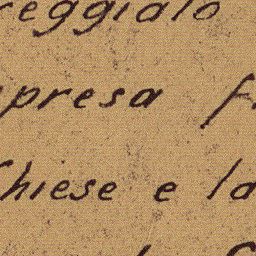 reggiato
presa f
Chiese e la